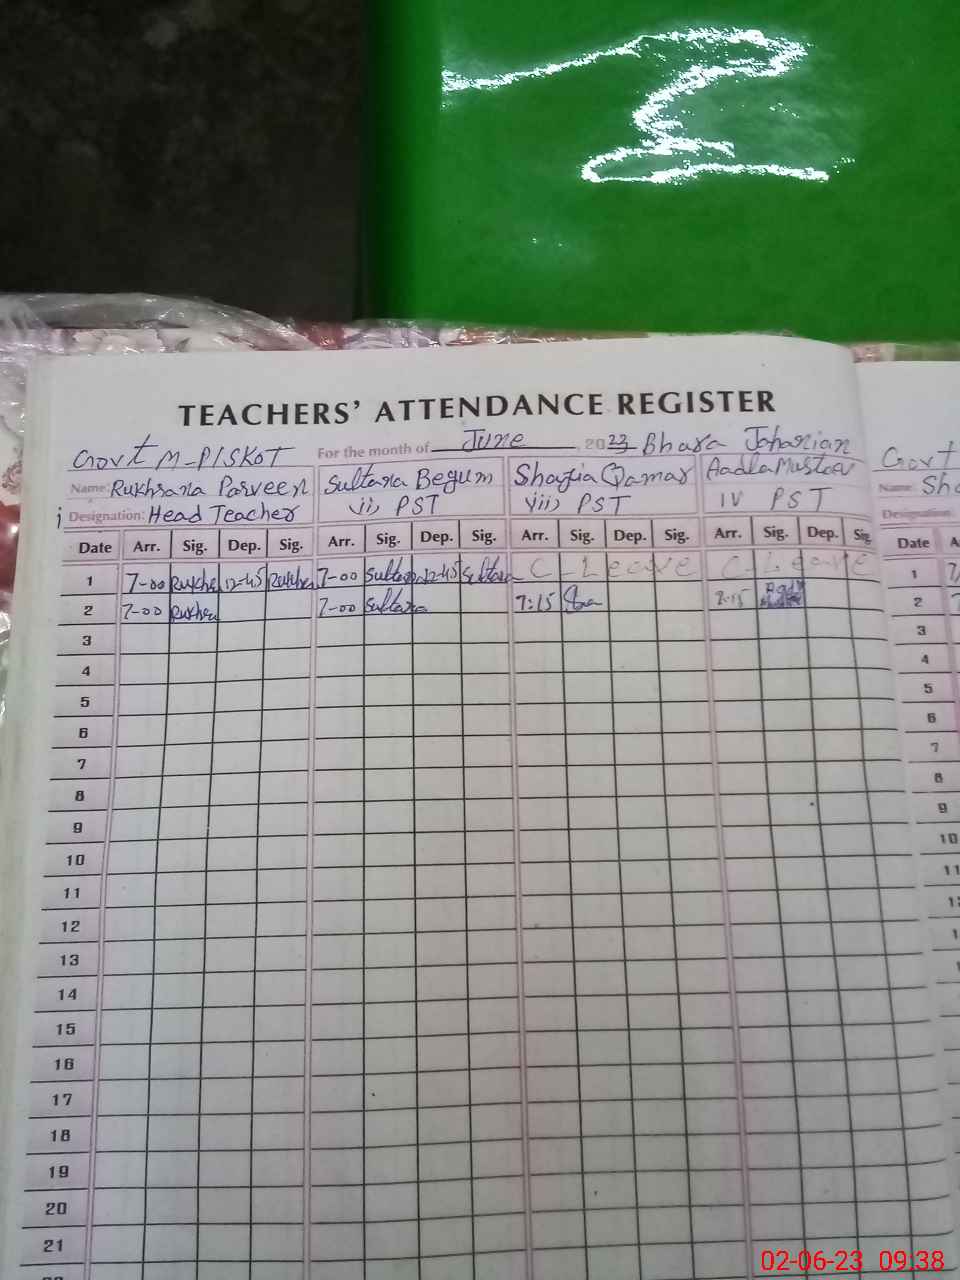 TEACHERS' ATTENDANCE REGISTER
Govt M-P/SKOT For the month of June, 2023 Bhara Joharian Govt
Name: Rukhsana Parveen Sultana Begum Shazia Qamar Name: Sh
i Designation: Head Teacher ii) PST iii) PST IV PST Designation
Date Arr. Sig. Dep. Sig. Arr. Sig. Dep. Sig. Arr. Sig. Dep. Sig. Arr. Sig. Dep. Sig. Date A
1 7-00 Rukhsa 12-45 Rukhsa 7-00 Sultana 12-45 Sultana C-Leave C-Leave 1
2 7-00 Rukhsa 7-00 Sultana 7:15 7:15 2
3 3
4 4
5 5
6 6
7 7
8 8
9 9
10 10
11 11
12
13
14
15
16
17
18
19
20
21
02-06-23 09:38